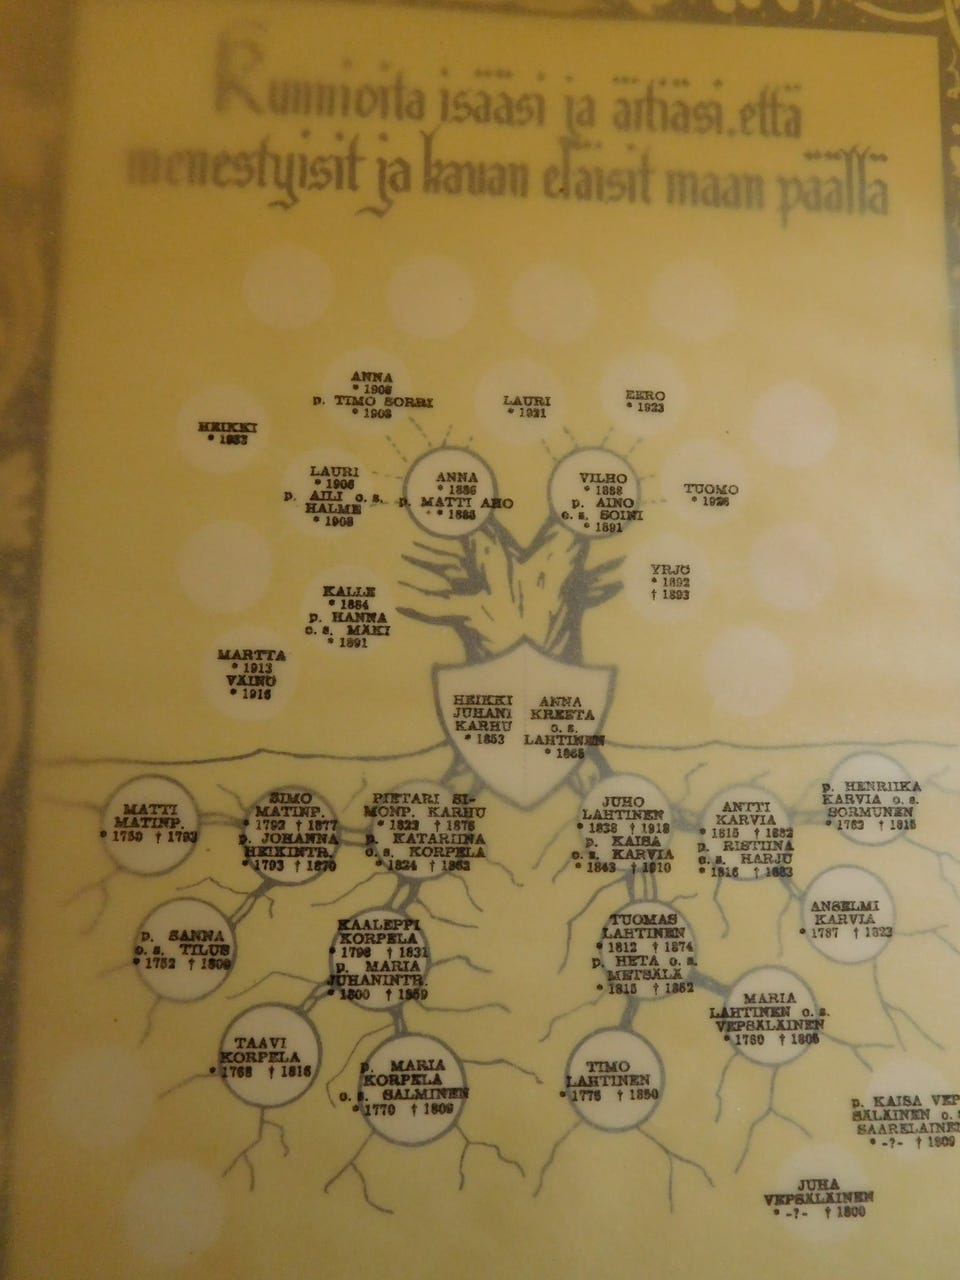 Kunnioita isääsi ja äitiäsi, että
menestyisit ja kauan eläisit maan päällä
ANNA
* 1906
p. TIMO SORRI
* 1903
LAURI
* 1921
EERO
* 1923
HEIKKI
LAURI
* 1906
p. AILI o.s.
HALME
* 1908
ANNA
* 1886
p. MATTI AHO
* 1883
VILHO
* 1888
p. AINO
o.s. SOINI
* 1891
TUOMO
* 1926
KALLE
* 1884
p. HANNA
o.s. MÄKI
* 1891
YRJÖ
* 1892
† 1893
MARTTA
* 1913
VÄINÖ
* 1916
HEIKKI
JUHANI
KARHU
* 1853
ANNA
KREETA
o.s.
LAHTINEN
MATTI
MATINP.
* 1750 † 1793
SIMO
MATINP.
* 1792 † 1877
p. JOHANNA
HEIKINTR.
* 1793 † 1870
PIETARI SI-
MONP. KARHU
* 1822 † 1876
p. KATARIINA
o.s. KORPELA
* 1824 † 1862
JUHO
LAHTINEN
* 1838 † 1918
p. KAISA
o.s. KARVIA
* 1843 † 1910
ANTTI
KARVIA
* 1815 † 1882
p. RISTIINA
o.s. HARJU
* 1816 † 1883
p. HENRIIKA
KARVIA o.s.
SORMUNEN
* 1763 † 1815
p. SANNA
o.s. TILUS
* 1752 † 1809
KAALEPPI
KORPELA
* 1798 † 1831
p. MARIA
JUHANINTR.
* 1800 † 1859
TUOMAS
LAHTINEN
* 1812 † 1874
p. HETA o.s.
METSÄLÄ
* 1815 † 1862
ANSELMI
KARVIA
* 1787 † 1823
TAAVI
KORPELA
* 1768 † 1816
p. MARIA
KORPELA
o.s. SALMINEN
* 1770 † 1809
TIMO
LAHTINEN
* 1775 † 1850
MARIA
LAHTINEN o.s.
VEPSÄLÄINEN
* 1780 † 1806
p. KAISA VEP
SÄLÄINEN o.s
SAARELAINEN
* -?- † 1809
JUHA
VEPSÄLÄINEN
* -?- † 1800